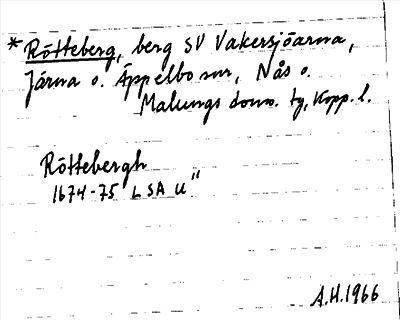 * Rötteberg, berg SV Vakersjöarna,
Järna o. Äppelbo snr, Nås o.
Malungs doms. tg, Kopp. l.
Röttebergh
1674-75 LSA U"
A.H.1966